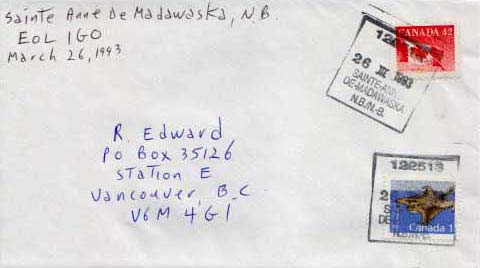 Sainte Anne de Madawaska, N.B.
E0L 1G0
March 26, 1993
CANADA 42
122513
26 III 1993
SAINTE-ANNE
DE-MADAWASKA
N.B./N.-B.
R. Edward
PO Box 35126
Station E
Vancouver, B.C
V6M 4G1
122513
2
DE
Canada 1